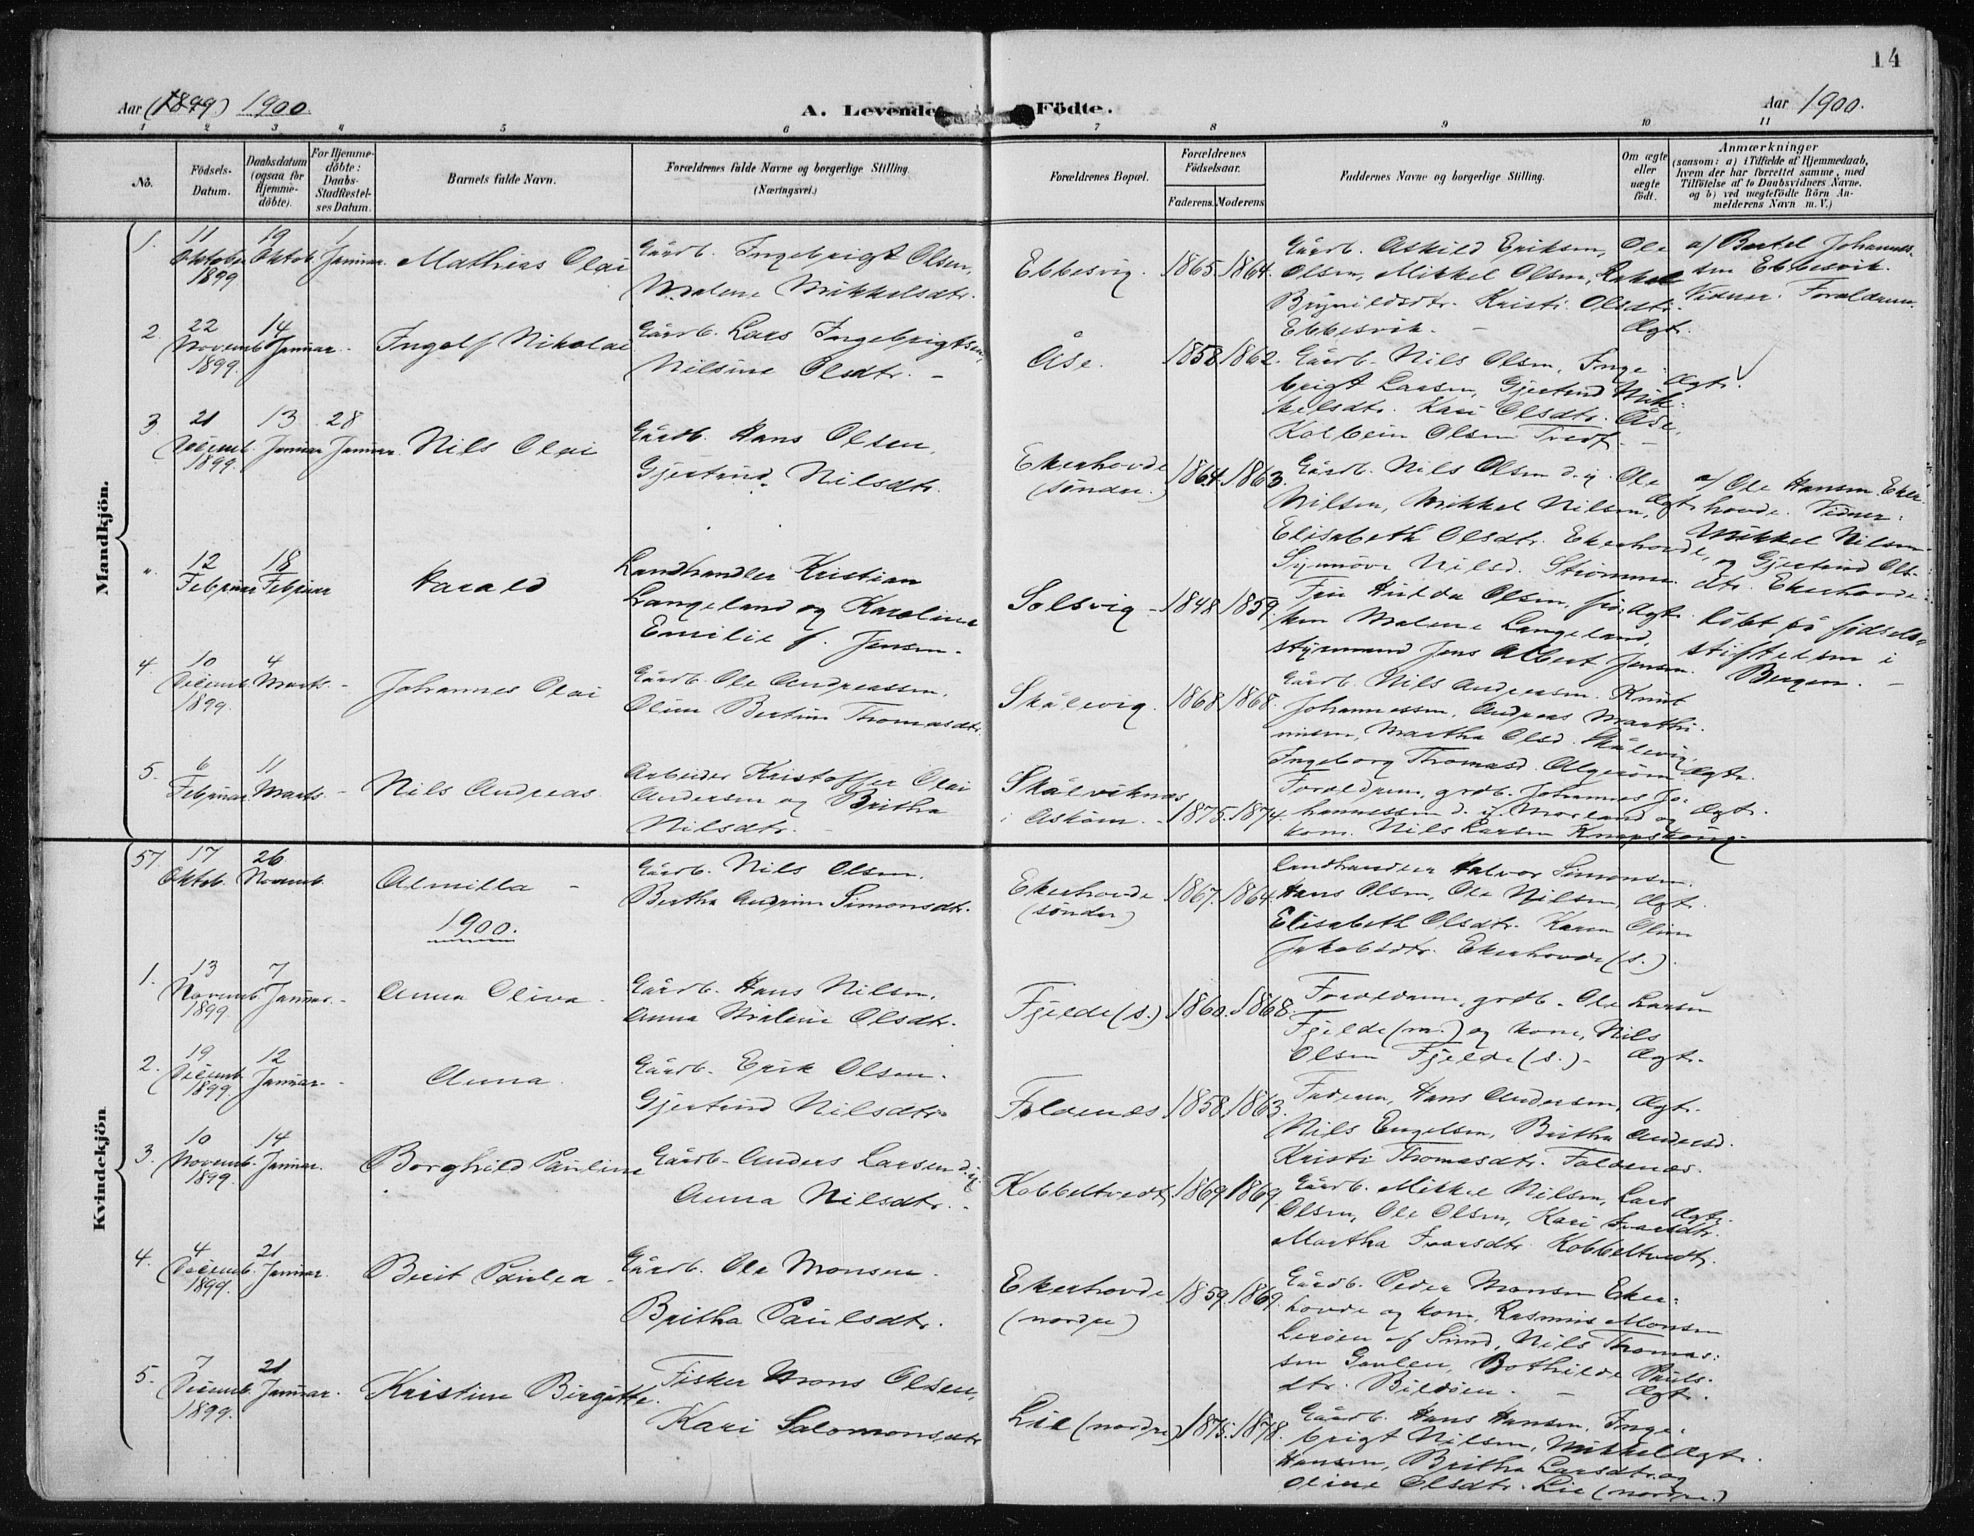 14
Aar (1899) 1900. A. Levende Födte. Aar 1900.
1 2 3 4 5 6 7 8 9 10 11
No.
Födsels-Datum.
Daabsdatum (ogsaa for Hjemme-döbte).
For Hjemme-döbte: Daabs-Stadfæstel-ses Datum.
Barnets fulde Navn.
Forældrenes fulde Navne og borgerlige Stilling.
(Næringsvei.)
Forældrenes Bopæl.
Forældrenes Födselsaar.
Faderens. Moderens.
Faddernes Navne og borgerlige Stilling.
Om ægte eller uægte födt.
Anmærkninger
(saasom: a) i Tilfælde af Hjemmedaab,
hvem der har forrettet samme, med
Tilföielse af to Daabsvidners Navne,
og b) ved uægtefödte Börn An-
melderens Navn m. V.)
Mandkjön.
1. 11 Oktober 1899 19 Oktob. 1 Januar. Mathias Olai
Gårdb. Ingebrigt Olsen,
Malene Mikkelsdtr.
Ebbesvig. 1865. 1864.
Gårdb. Askild Eriksen, Ole
Olsen, Mikkel Olsen, Rakel
Brynildsdtr. Kristi Olsdtr.
Ebbesvik. - Ægt.
a/ Bertel Johannes-
sen Ebbesvik.
Vidner: Forældrene.
2. 22 Novemb. 1899. 14 Januar. Ingolf Nikolai
Gårdb. Lars Ingebrigtsen,
Nilsine Olsdtr. -
Åse. 1858. 1862.
Gårdb. Nils Olsen, Inge-
brigt Larsen, Gjertrud Mik-
kelsdtr. Kari Olsdtr. Åse,
Kolbein Olsen Tveit. -
Ægt.
3 21 Decemb. 1899. 13 Januar 28 Januar. Nils Olai
Gårdb. Hans Olsen,
Gjertrud Nilsdtr.
Ekerhovde (søndre.) 1864. 1863.
Gårdb. Nils Olsen d.y. Ole
Nilsen, Mikkel Nilsen, Ægt.
Elisabeth Olsdtr. Ekerhovde,
Synnöve Nilsd. Strömme.
a/ Ole Hansen Eker-
hovde. Vidner:
Mikkel Nilsen
og Gjertrud Ols-
dtr. Ekerhovde.
" 12 Februar 18 Februar Harald
Landhandler Kristian
Langeland og Karoline
Emilie f. Jensen.
Solsvig - 1848. 1859.
Fru Hulda Olsen, frö- Ægt.
ken Malene Langeland,
styrmand Jens Albert Jensen.
Döbt på födsels-
stiftelsen i
Bergen. -
4. 10 Decemb. 1899. 4 Marts - Johannes Olai
Gårdb. Ole Andreassen,
Oline Bertine Thomasdtr.
Skålevig. 1868. 1868.
Gårdb. Nils Andersen. Knut
Johannessen, Andreas Marthi-
nusen, Martha Olsd. Skålevig
Ingeborg Thomasd. Algeröen Ægt.
5. 6 Februar 11 Marts - Nils Andreas.
Arbeider Kristoffer Olai
Andersen og Britha
Nilsdtr. -
Skålviknes i Asköen. - 1875. 1874.
Forældrene, grdb. Johannes Jo-
hannessen d. y. Morland og Ægt.
kone. Nils Larsen
Kvindekjön
57 17 Oktob. 26 Novemb. Almilla -
Gårdb. Nils Olsen.
Bertha Andrine Simonsdtr.
Ekerhovde (söndre) 1867. 1864.
Landhandler Halvor Simonsen.
Hans Olsen, Ole Nilsen, Ægt.
Elisabeth Olsdtr. Karen Oline
Jakobsdtr. Ekerhovde (s.)
1900.
1. 13 Novemb. 1899 7 Januar. - Anna Oliva -
Gårdb. Hans Nilsen,
Anna Malene Olsdtr.
Fjelde (s.) 1860. 1868.
Forældrene, grdb. Ole Larsen
Fjelde (n.) og kone, Nils
Olsen Fjelde (s.) - Ægt.
2. 19 Decemb. 1899. 12 Januar. - Anna.
Gårdb. Erik Olsen.
Gjertrud Nilsdtr.
Foldenæs 1858. 1863.
Faderen, Hans Andersen, Ægt.
Nils Engelsen, Britha Andersd.
Kristi Thomasdtr. Foldenæs.
3. 10 Novemb. 1899. 14 Januar. Borghild Pauline
Gårdb. Anders Larsen d.y.
Anna Nilsdtr. -
Kobbeltvedt, 1869. 1869.
Gårdb. Mikkel Nilsen, Lars
Olsen, Ole Olsen, Kari Ivarsdtr. Ægt.
Martha Ivarsdtr. Kobbeltvedt.
4. 4 Decemb. 1899. 21 Januar. Berit Paulea -
Gårdb. Ole Monsen.
Britha Paulsdtr.
Ekerhovde (nordre) 1859. 1869.
Gårdb. Peder Monsen Eker-
hovde og kone, Rasmus Monsen
Leröen af Sund, Nils Thomas-
sen Gaulen, Bothilde Pauls-
dtr. Bildöen. - Ægt.
5. 7 Decemb. 1899. 21 Januar. Kristine Birgitte.
Fisker Mons Olsen,
Kari Salomonsdtr
Lie (nordre) 1875. 1878.
Gårdb. Hans Hansen, Inge-
brigt Nilsen, Mikkel Ægt.
Hansen, Britha Larsdtr. og
Oline Olsdtr. Lie (nordre.)